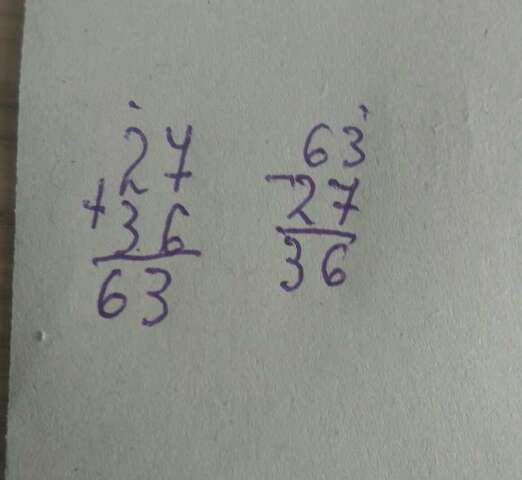 27
+
36
63
63
-
27
36